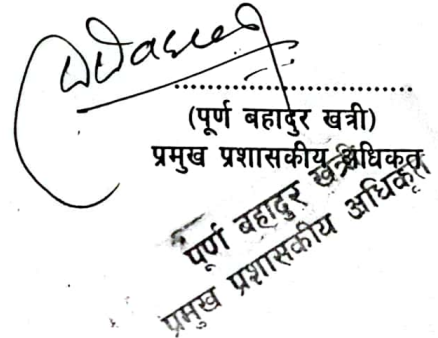 (पूर्ण बहादुर खत्री)
प्रमुख प्रशासकीय अधिकृत
पूर्ण बहादुर खत्री
प्रमुख प्रशासकीय अधिकृत